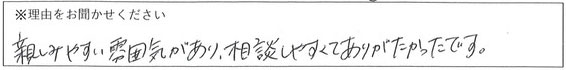 ※理由をお聞かせください
親しみやすい雰囲気があり、相談しやすくてありがたかったです。